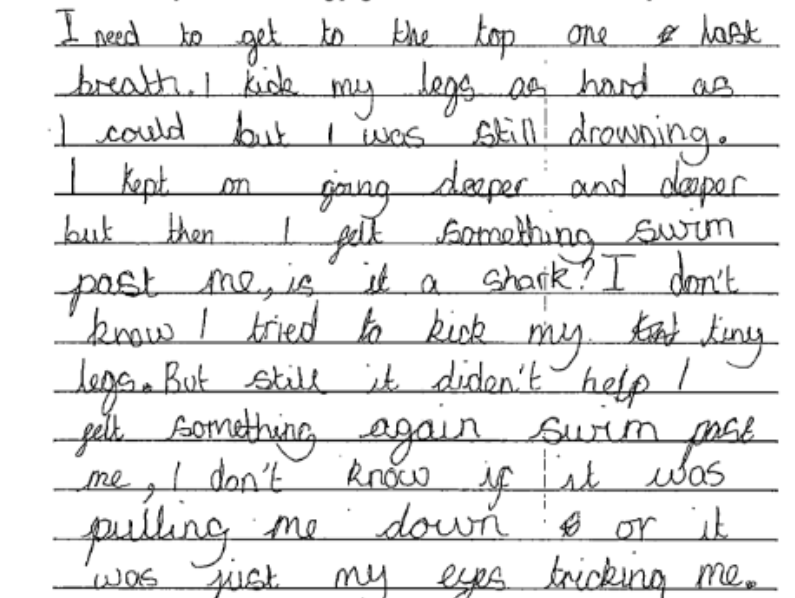 I need to get to the top one last
breath. I kick my legs as hard as
I could but I was still drowning.
I kept on going deeper and deeper
but then I felt something swim
past me, is it a shark? I don't
know I tried to kick my tiny
legs. But still it diden't help I
felt something again swim past
me, I don't know if it was
pulling me down or it
was just my eyes tricking me.